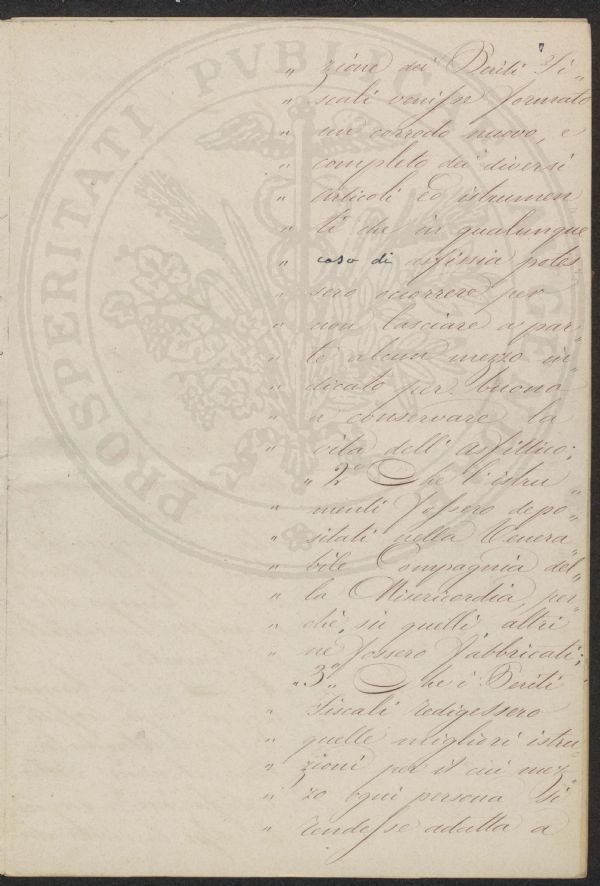 7
" zione dei Periti Fi"
" scali venisse formato
" un corredo nuovo, e
" completo dei diversi
" articoli ed istrumen
" ti che in qualunque
" caso di asfissia potes"
" sero occorrere per
" non lasciare a par"
" te alcun mezzo in"
" dicato per buono
" a conservare la
" vita dell'asfittico;
" 2° Che l'istru"
" menti fossero depo"
" sitati nella Venera"
" bile Compagnia del"
" la Misericordia, per"
" chè, su quelli altri
" ne fossero fabbricati;
" 3° " Che i Periti
" Fiscali redigessero
" quelle migliori istru"
" zioni per il cui mez"
" zo ogni persona si
" rendesse adatta a
PROSPERITATI PVBLICAE